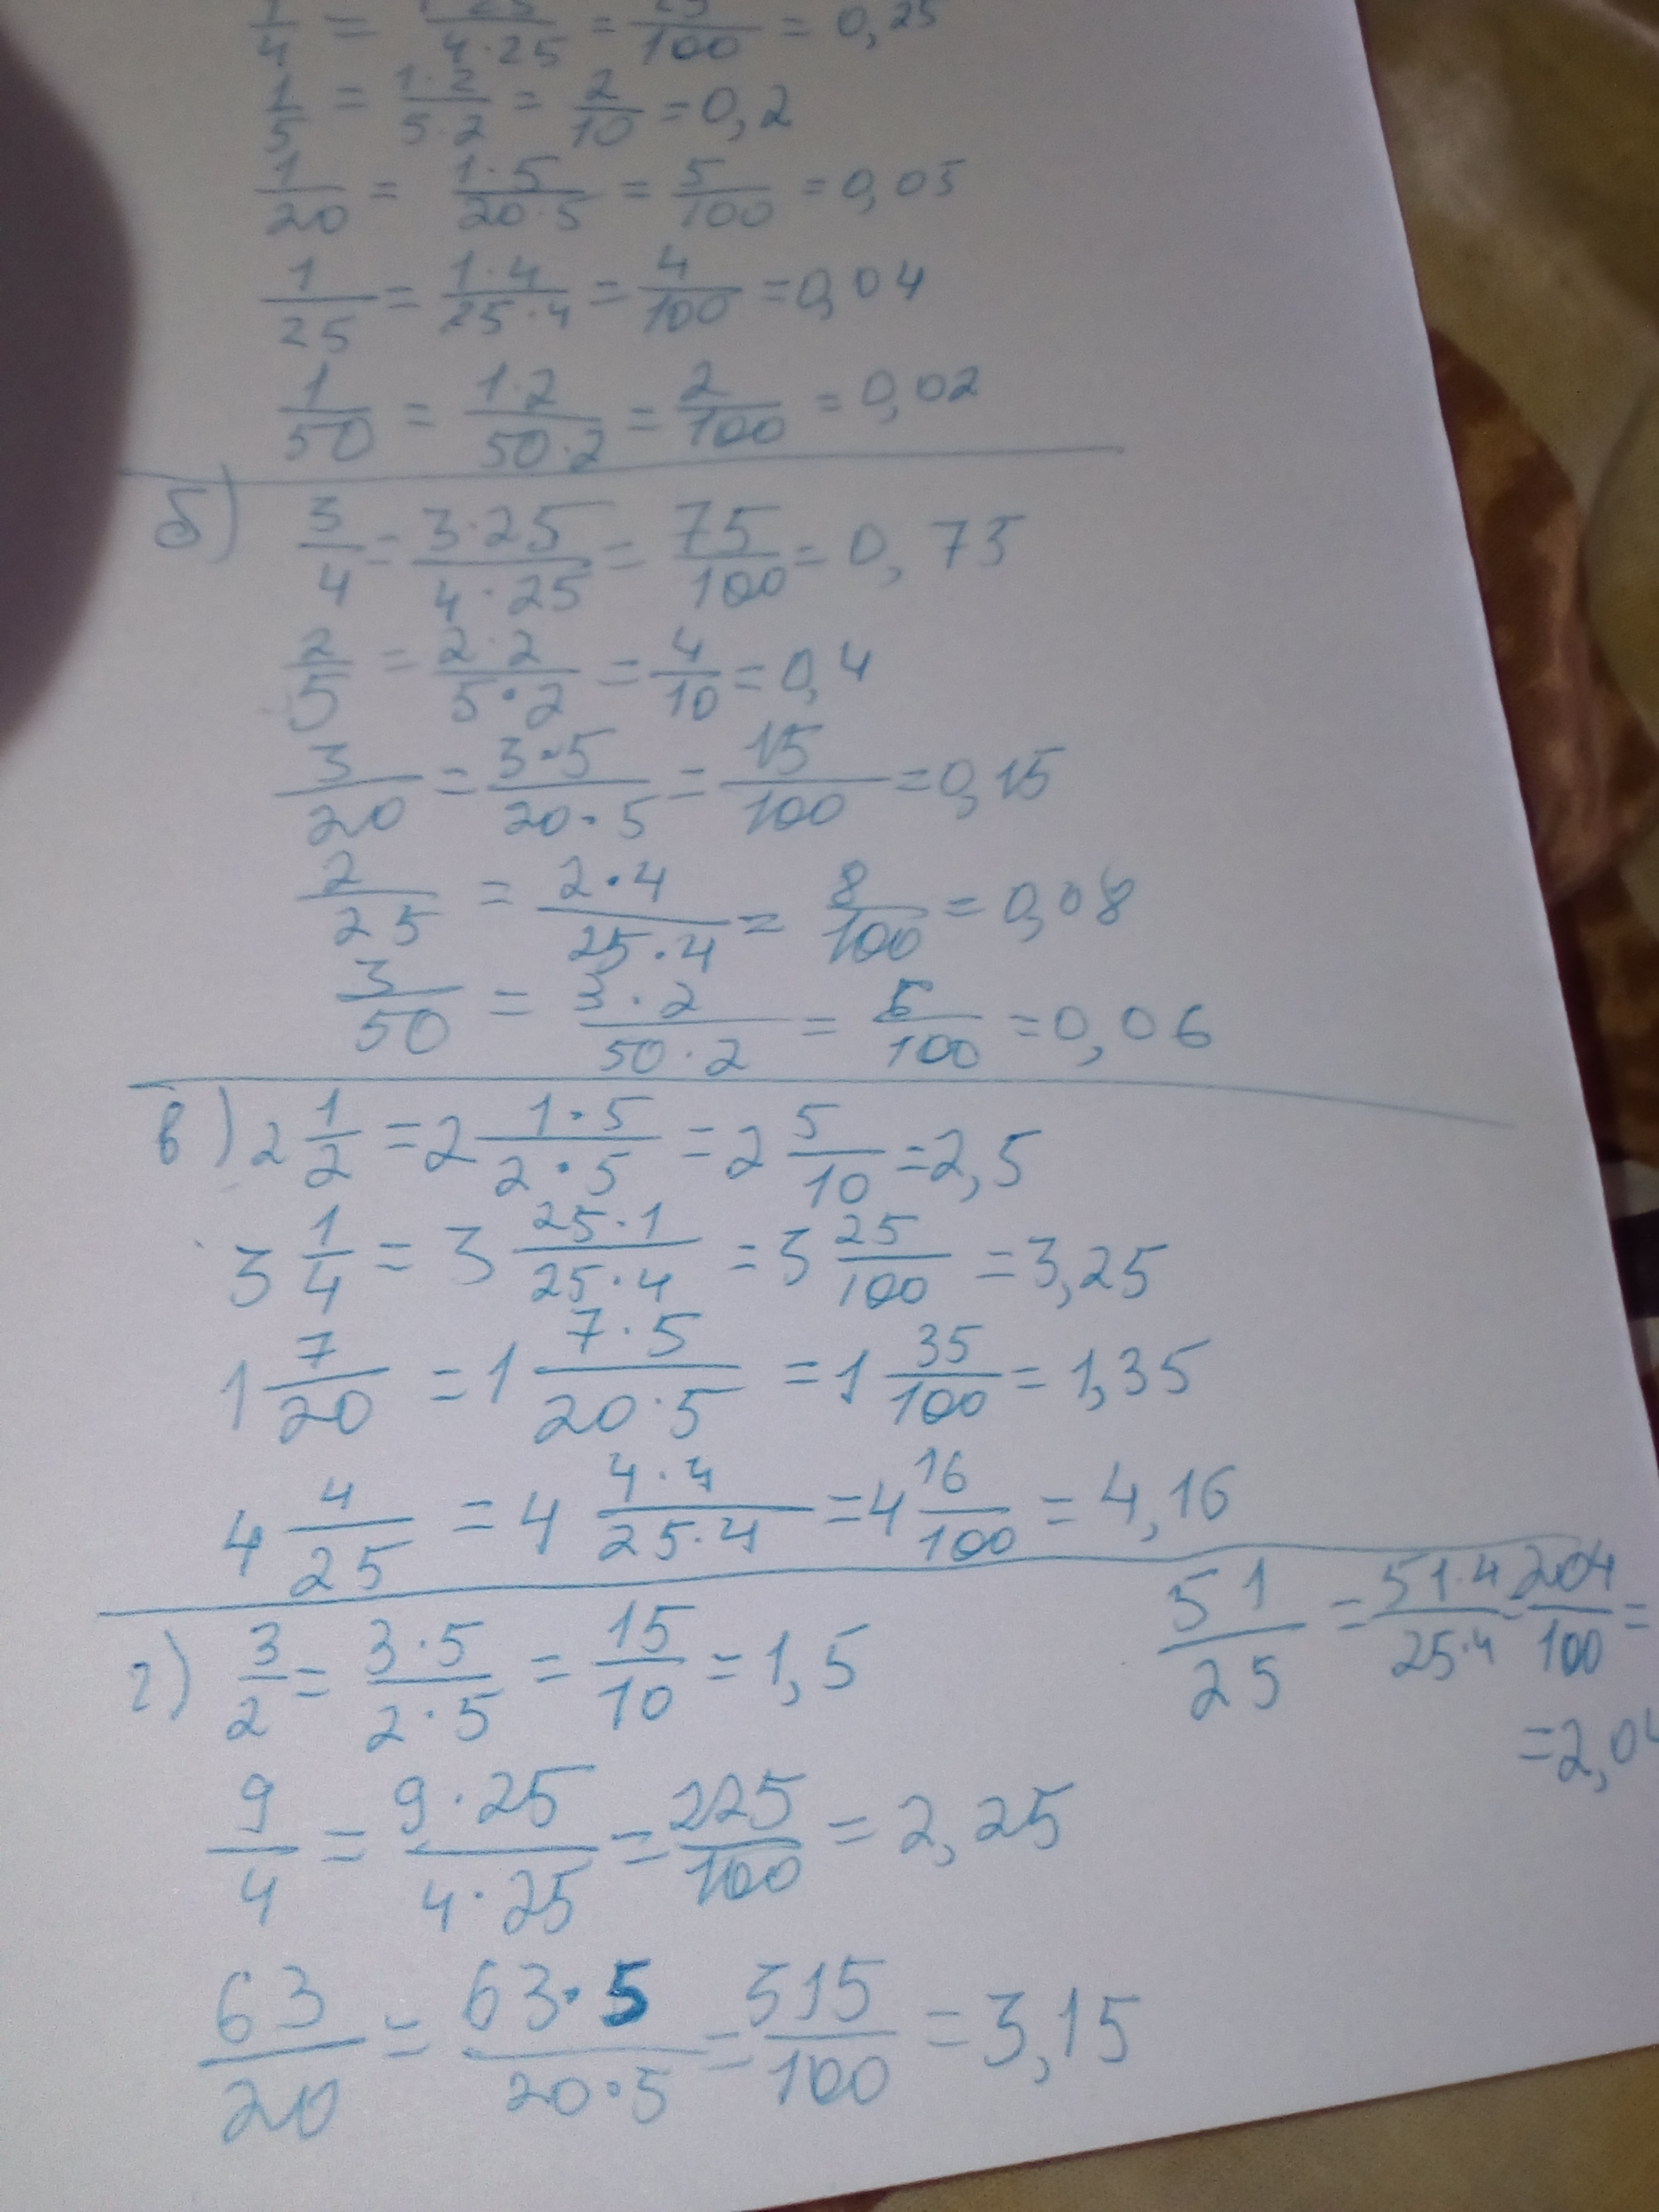 1/4 = 1·25/4·25 = 25/100 = 0,25
1/5 = 1·2/5·2 = 2/10 = 0,2
1/20 = 1·5/20·5 = 5/100 = 0,05
1/25 = 1·4/25·4 = 4/100 = 0,04
1/50 = 1·2/50·2 = 2/100 = 0,02
б) 3/4 = 3·25/4·25 = 75/100 = 0,75
2/5 = 2·2/5·2 = 4/10 = 0,4
3/20 = 3·5/20·5 = 15/100 = 0,15
2/25 = 2·4/25·4 = 8/100 = 0,08
3/50 = 3·2/50·2 = 6/100 = 0,06
в) 2 1/2 = 2 1·5/2·5 = 2 5/10 = 2,5
3 1/4 = 3 25·1/25·4 = 3 25/100 = 3,25
1 7/20 = 1 7·5/20·5 = 1 35/100 = 1,35
4 4/25 = 4 4·4/25·4 = 4 16/100 = 4,16
г) 3/2 = 3·5/2·5 = 15/10 = 1,5
51/25 = 51·4/25·4 = 204/100 =
= 2,04
9/4 = 9·25/4·25 = 225/100 = 2,25
63/20 = 63·5/20·5 = 315/100 = 3,15